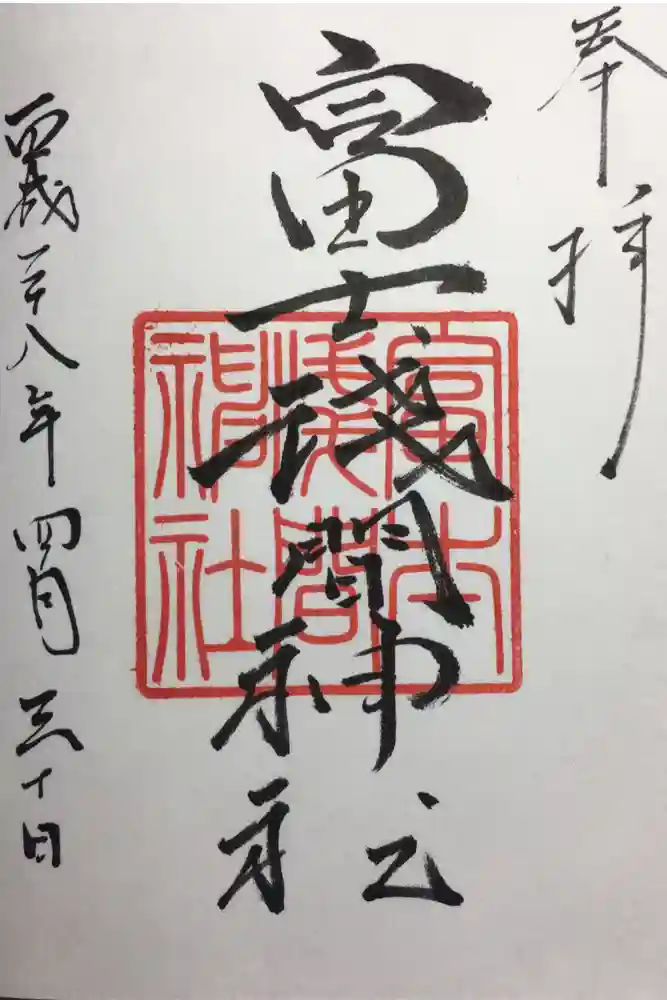 奉拝
富士淺間神社
富士
淺間
神社
平成二十八年四月三十日